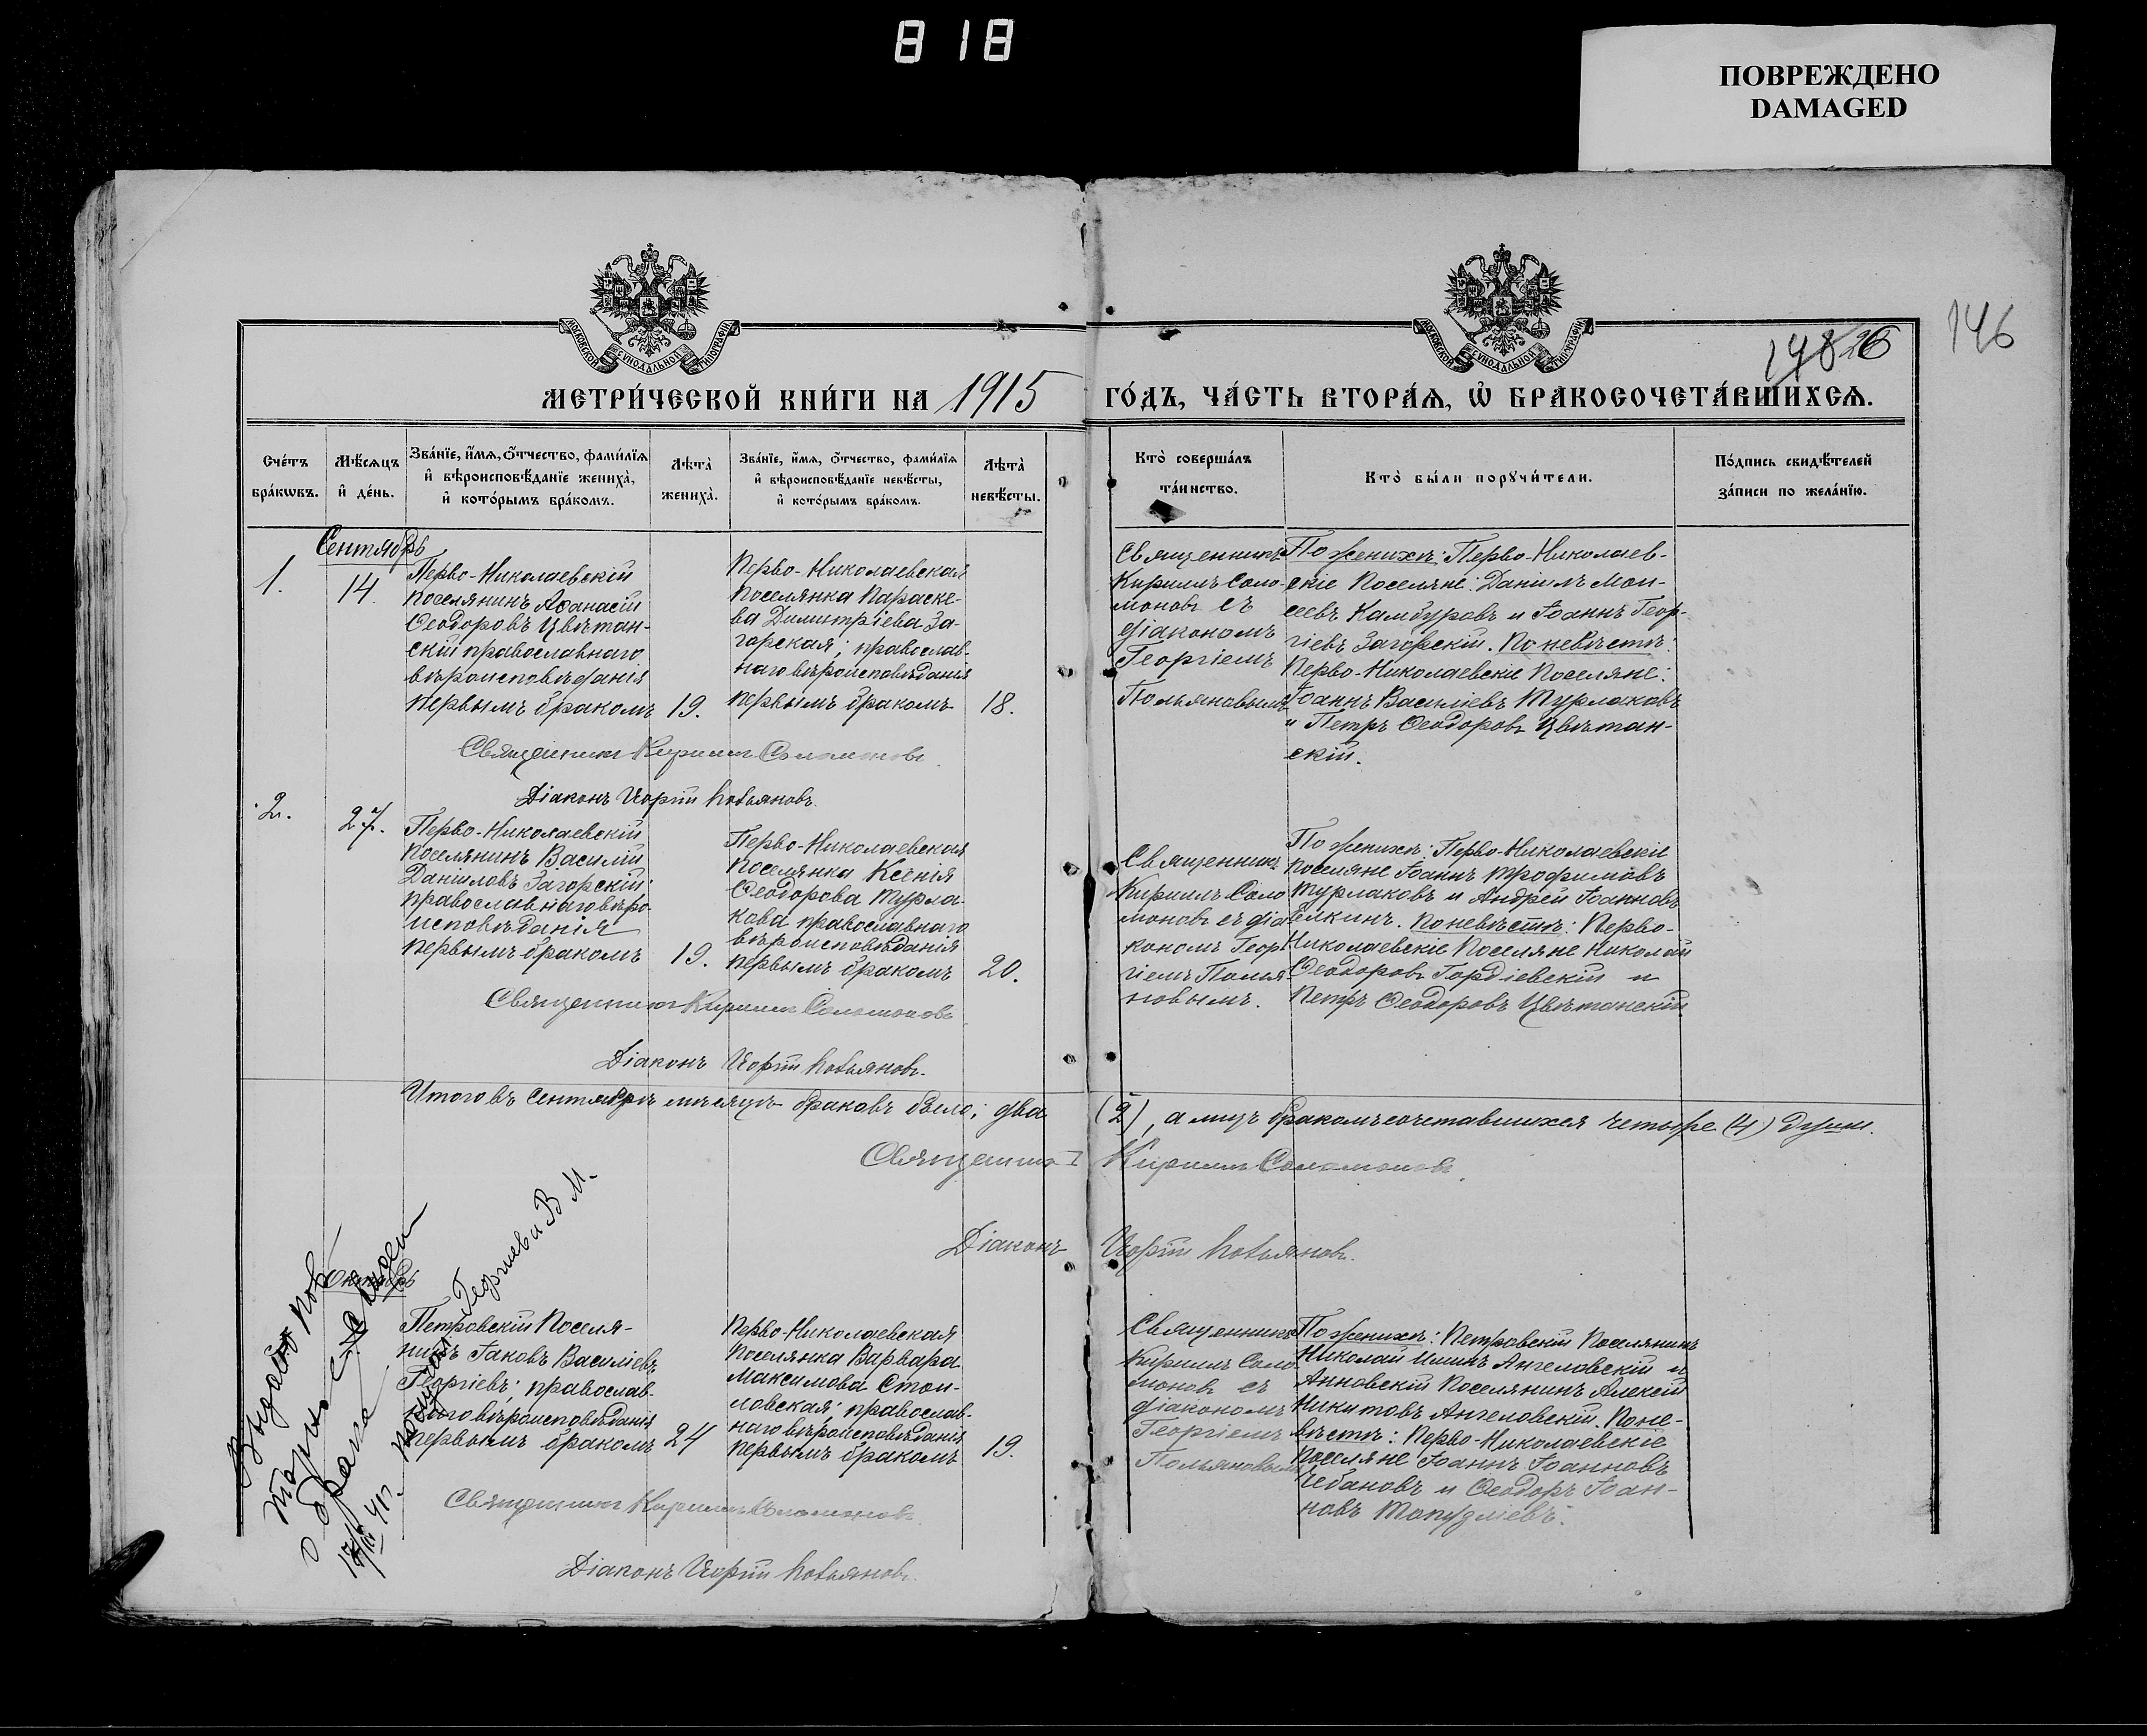 818
ПОВРЕЖДЕНО
DAMAGED
146
148 26
МОСКОВСКОЙ СѴНОДАЛЬНОЙ ТИПОГРАФІИ
МОСКОВСКОЙ СѴНОДАЛЬНОЙ ТИПОГРАФІИ
МЕТРИ́ЧЕСКОЙ КНИ́ГИ НА 1915 ГО́ДЪ, ЧА́СТЬ ВТОРА́Ѧ, Ѡ҆ БРАКОСОЧЕТА́ВШИХСѦ.
Сче́тъ
бра́кѡвъ.
Мѣ́сѧцъ
и҆ де́нь.
Зва́нїе, и҆́мѧ, ѻ҆́тчество, фами́лїѧ
и҆ вѣроисповѣ́данїе жениха̀,
и҆ кото́рымъ бра́комъ.
Лѣта̀
жениха̀.
Зва́нїе, и҆́мѧ, ѻ҆́тчество, фами́лїѧ
и҆ вѣроисповѣ́данїе невѣ́сты,
и҆ кото́рымъ бра́комъ.
Лѣта̀
невѣ́сты.
Кто̀ соверша́лъ
та́инство.
Кто̀ бы́ли порꙋчи́тели.
По́дпись свидѣ́телей
за́писи по жела́нїю.
Сентябрь
1.
14.
Перво-Николаевскій
поселянинъ Аѳанасій
Ѳеодоровъ Цвѣтан-
скій православнаго
вѣроисповѣданія
первымъ бракомъ
19.
Перво-Николаевская
поселянка Параске-
ва Димитріева За-
горская; православ-
наго вѣроисповѣданія
первымъ бракомъ
18.
Священникъ
Кириллъ Соло-
моновъ съ
діакономъ
Георгіемъ
Польяновымъ
По женихѣ: Перво-Николаев-
скіе поселяне: Даніилъ Мои-
сеевъ Камбуровъ и Іоаннъ Геор-
гіевъ Загорскій. По невѣстѣ:
Перво-Николаевскіе поселяне:
Іоаннъ Василіевъ Турлаковъ
и Петръ Ѳеодоровъ Цвѣтан-
скій.
Священникъ Кириллъ Соломоновъ
Діаконъ Георгій Польяновъ.
2.
27.
Перво-Николаевскій
поселянинъ Василій
Даніиловъ Загорскій;
православнаго вѣро-
исповѣданія
первымъ бракомъ
19.
Перво-Николаевская
поселянка Ксенія
Ѳеодорова Турла-
кова православнаго
вѣроисповѣданія
первымъ бракомъ
20.
Священникъ
Кириллъ Соло
моновъ съ діа
кономъ Геор
гіемъ Полья
новымъ.
По женихѣ: Перво-Николаевскіе
поселяне Іоаннъ Трофимовъ
Турлаковъ и Андрей Іоанновъ
Елкинъ. По невѣстѣ: Перво-
Николаевскіе поселяне Николай
Ѳеодоровъ Гордіевскій и
Петръ Ѳеодоровъ Цвѣтанскій
Священникъ Кириллъ Соломоновъ
Діаконъ Георгій Польяновъ.
Итого въ Сентябрѣ мѣсяцѣ браковъ было: два (2), а лицъ бракомъ сочетавшихся четыре (4) души.
Священникъ Кириллъ Соломоновъ.
Діаконъ Георгій Польяновъ.
Октябрь
Петровскій поселя-
нинъ Іаковъ Василіевъ
Георгіевъ; православ-
наго вѣроисповѣданія
первымъ бракомъ
24
Перво-Николаевская
поселянка Варвара
Максимова Стои-
ловская; православ-
наго вѣроисповѣданія
первымъ бракомъ
19.
Священникъ
Кириллъ Соло
моновъ съ
діакономъ
Георгіемъ
Польяновымъ
По женихѣ: Петровскій поселянинъ
Николай Ильинъ Ангеловскій и
Анновскій поселянинъ Алексій
Никитовъ Ангеловскій. По не-
вѣстѣ: Перво-Николаевскіе
поселяне Іоаннъ Іоанновъ
Чебановъ и Ѳеодоръ Іоан-
новъ Топузліевъ.
Священникъ Кириллъ Соломоновъ
Діаконъ Георгій Польяновъ.
о браке
41 г.
Георгиева В М.